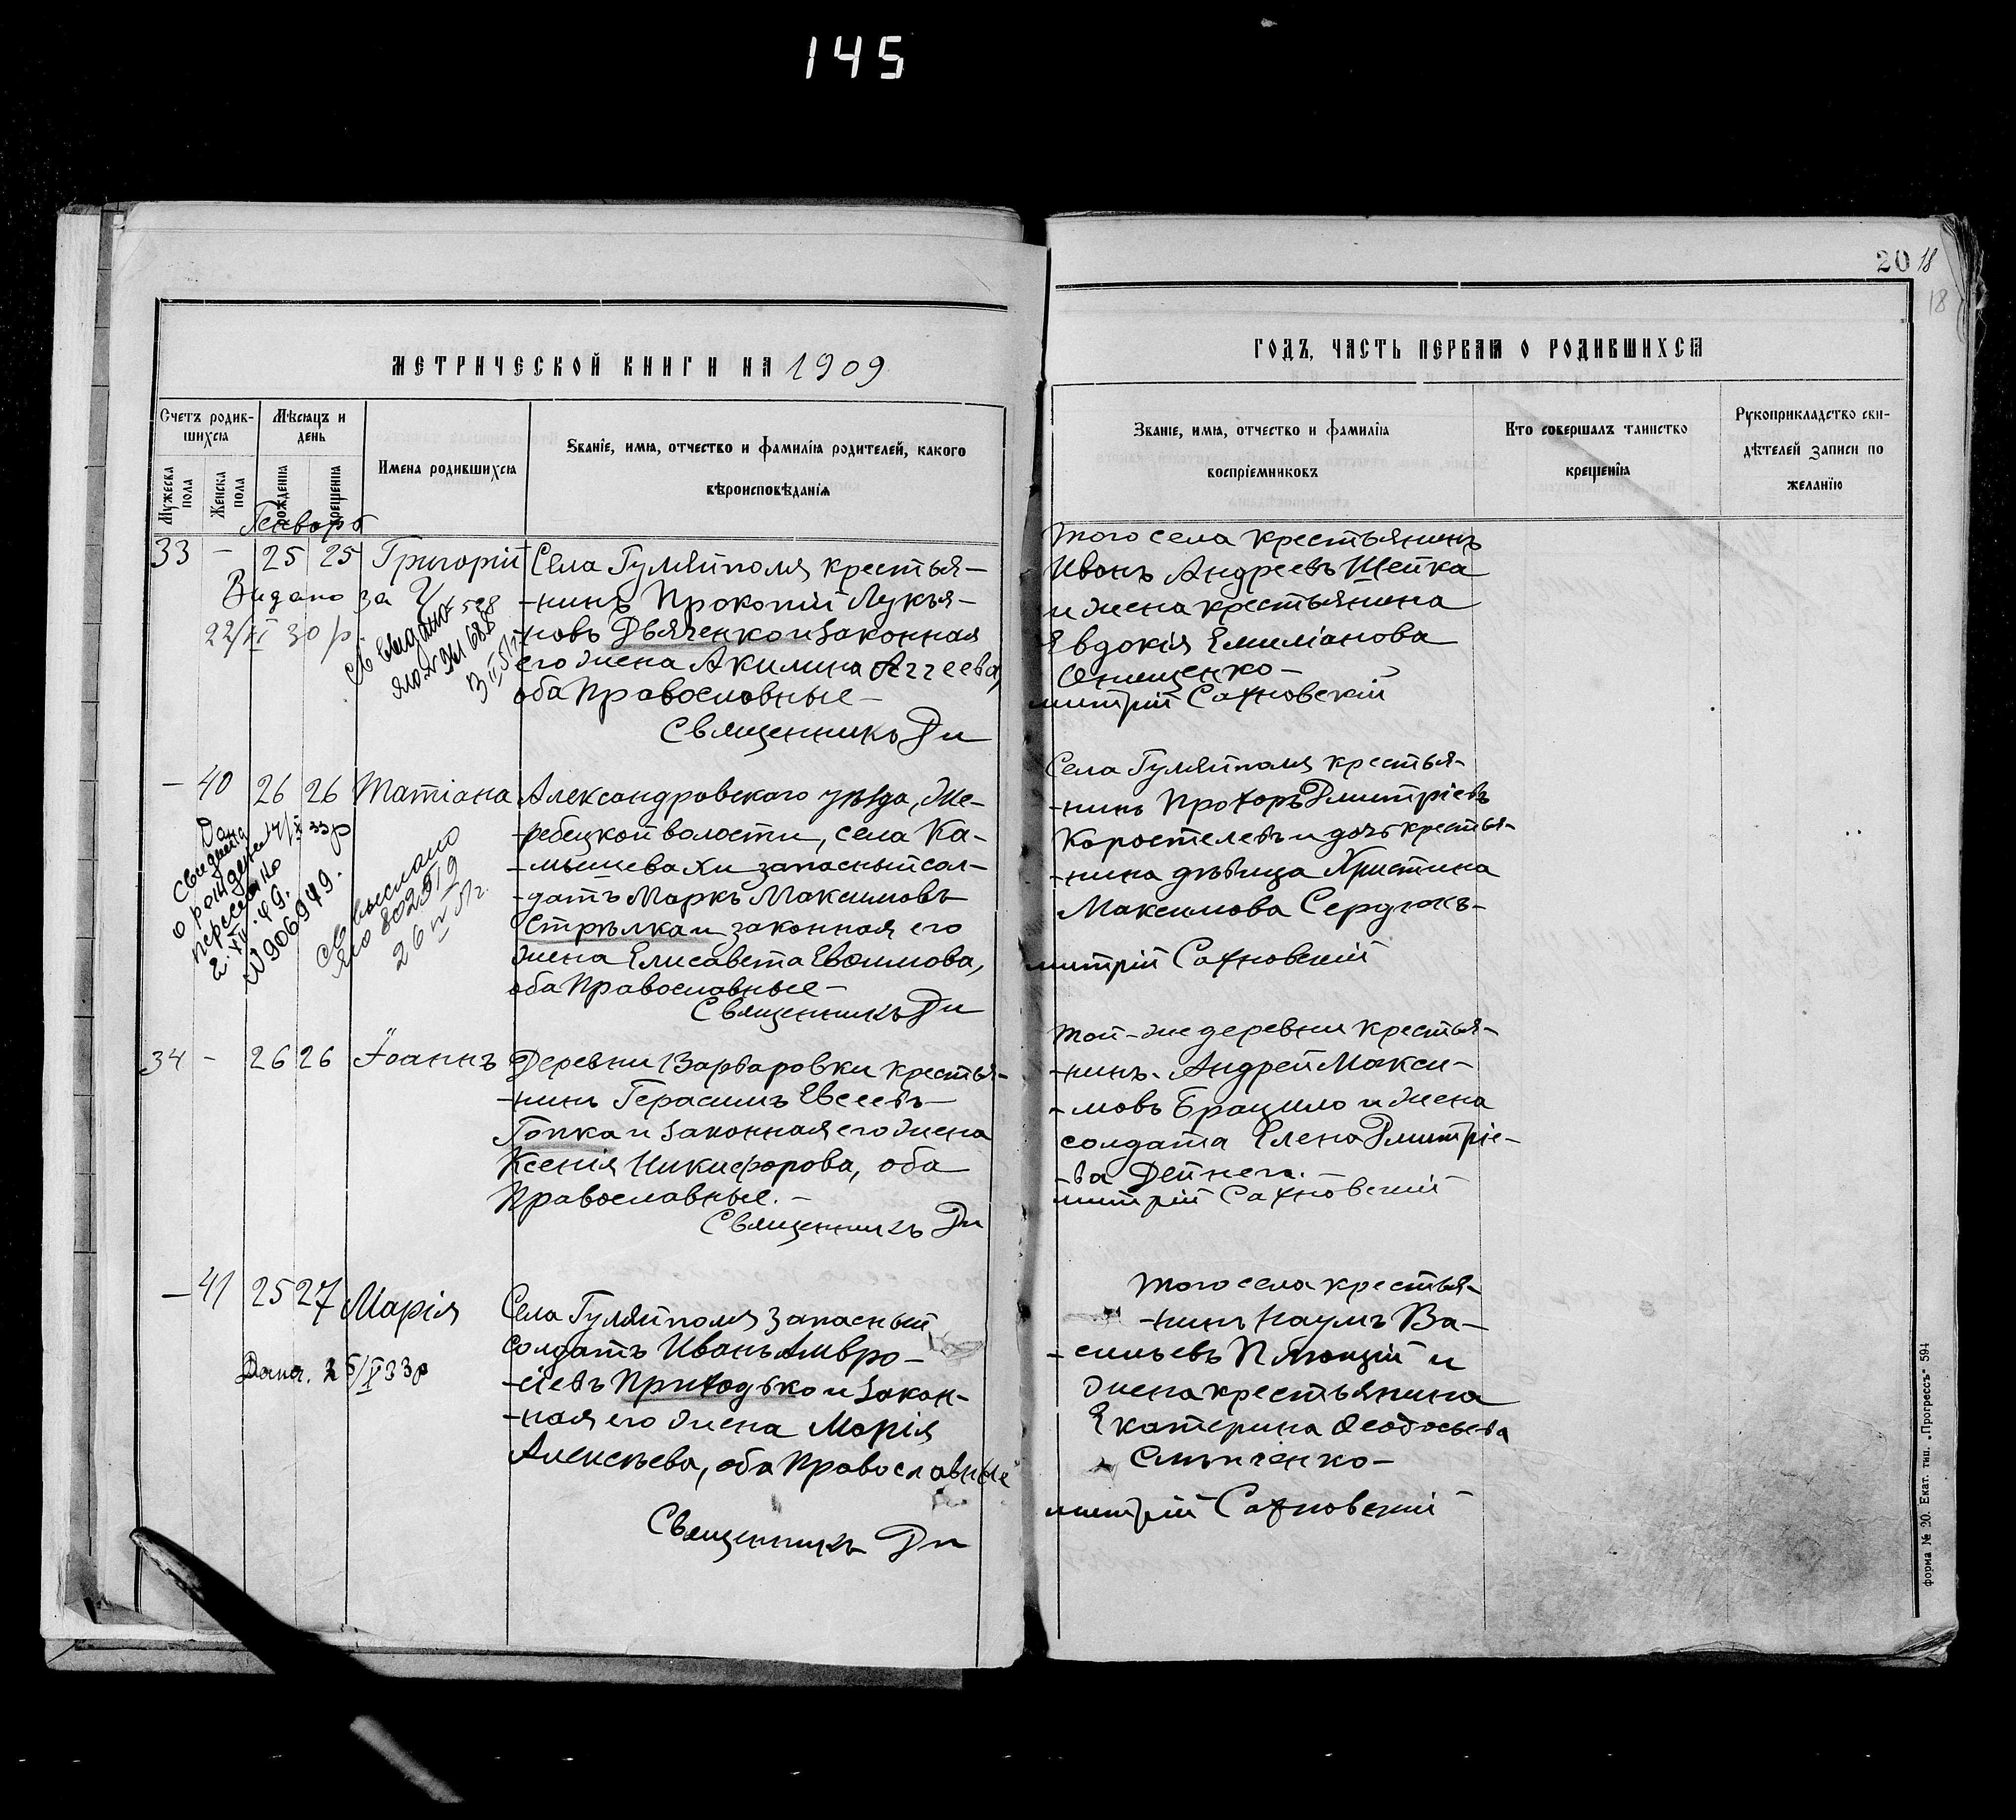 145
20 18
18
МЕТРИЧЕСКОЙ КНИГИ НА 1909
ГОДЪ, ЧАСТЬ ПЕРВАЯ О РОДИВШИХСЯ
Счетъ родив-
шихся
Мужеска
пола
Женска
пола
Мѣсяцъ и
день
рожденія
крещенія
Имена родившихся
Званіе, имя, отчество и фамилія родителей, какого
вѣроисповѣданія
Званіе, имя, отчество и фамилія
воспріемниковъ
Кто совершалъ таинство
крещенія
Рукоприкладство сви-
дѣтелей записи по
желанію
Генварь
33 - 25 25 Григорій
Видано за
22/XI 30 р.
Села Гуляйполя крестья-
-нинъ Прокопій Лукья-
-новъ Дьяченко и законная
его жена Акилина Аггеева,
оба Православные -
Священникъ Ди
того села крестьянинъ
Иванъ Андреевъ Щепка
и жена крестьянина
Евдокія Емиліанова
Онищенко -
митрій Сахновскій
- 40 26 26 Татіана
Дана
о рожден
2.XII.49.
N 906949.
Св выслано
яю 802519
26 IV 51г.
Александровскаго уѣзда, Же-
-ребецкой волости, села Ка-
-мышевахи запасный сол-
-датъ Маркъ Максимовъ
Стрѣлка и законная его
жена Елисавета Евѳимова,
оба Православные -
Священникъ Ди
Села Гуляйполя крестья-
-нинъ Прохоръ Дмитріевъ
Коростелевъ и дочь крестья-
-нина дѣвица Христина
Максимова Сердюкъ -
митрій Сахновскій
34 - 26 26 Іоаннъ
Деревни Варваровки крестья-
-нинъ Герасимъ Евсеевъ
Гопка и законная его жена
Ксенія Никифорова, оба
Православные. -
Священникъ Ди
той-же деревни крестья-
-нинъ Андрей Макси-
-мовъ Брацило и жена
солдата Елена Дмитріе-
-ва Дейнега. -
митрій Сахновскій
- 41 25 27 Марія
Дана. 25/X 33р
Села Гуляйполя запасный
солдатъ Иванъ Амвро-
-сіевъ Приходько и закон-
-ная его жена Марія
Алексѣева, оба Православные
Священникъ Ди
того села крестья-
-нинъ Наумъ Ва-
-сильевъ и
жена крестьянина
Екатерина Ѳеодосьева
Слипченко -
митрій Сахновскій
форма № 20. Екат. тип. „Прогрессъ" 594